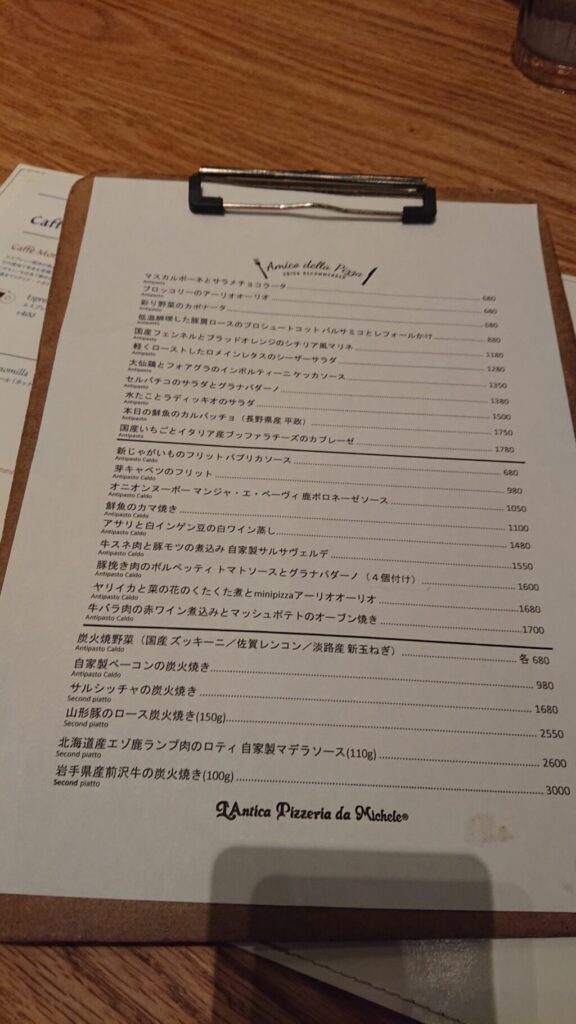 Amico della Pizza
マスカルポーネとサラメチョコラータ 680
Antipasto
ブロッコリーのアーリオオーリオ 680
Antipasto
彩り野菜のカポナータ 680
Antipasto
低温調理した豚肩ロースのプロシュートコット バルサミコとレフォールがけ 880
Antipasto
国産フェンネルとブラッドオレンジのシチリア風マリネ 1180
Antipasto
軽くローストしたロメインレタスのシーザーサラダ 1280
Antipasto
大仙鶏とフォアグラのインボルティーニ ケッカソース 1350
Antipasto
セルバチコのサラダとグラナパダーノ 1380
Antipasto
水たことラディッキオのサラダ 1500
Antipasto
本日の鮮魚のカルパッチョ（長野県産 平政） 1750
Antipasto
国産いちごとイタリア産ブッファラチーズのカプレーゼ 1780
Antipasto
新じゃがいものフリット パプリカソース 680
Antipasto Caldo
芽キャベツのフリット 980
Antipasto Caldo
オニオンヌーボー マンジャ・エ・ベーヴィ 鹿ボロネーゼソース 1050
Antipasto Caldo
鮮魚のカマ焼き 1100
Antipasto Caldo
アサリと白インゲン豆の白ワイン蒸し 1480
Antipasto Caldo
牛スネ肉と豚モツの煮込み 自家製サルサヴェルデ 1550
Antipasto Caldo
豚挽き肉のポルペッティ トマトソースとグラナパダーノ（４個付け） 1600
Antipasto Caldo
ヤリイカと菜の花のくたくた煮とminipizzaアーリオオーリオ 1680
Antipasto Caldo
牛バラ肉の赤ワイン煮込みとマッシュポテトのオーブン焼き 1700
Antipasto Caldo
炭火焼野菜（国産 ズッキーニ／佐賀レンコン／淡路産 新玉ねぎ） 各 680
Antipasto Caldo
自家製ベーコンの炭火焼き 980
Antipasto Caldo
サルシッチャの炭火焼き 1680
Second piatto
山形豚のロース炭火焼き(150g) 2550
Second piatto
北海道産エゾ鹿ランプ肉のロティ 自家製マデラソース(110g) 2600
Second piatto
岩手県産前沢牛の炭火焼き(100g) 3000
Second piatto
L'Antica Pizzeria da Michele®
Caff
Caffè Mo
Espre
¥400
momilla